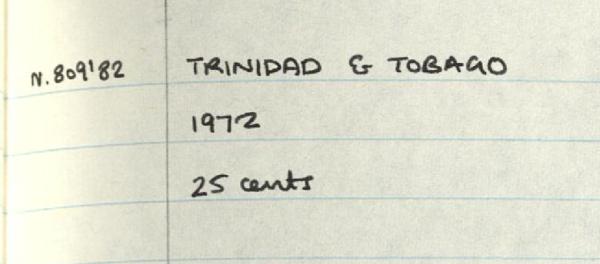 N.809'82 TRINIDAD & TOBAGO
1972
25 cents